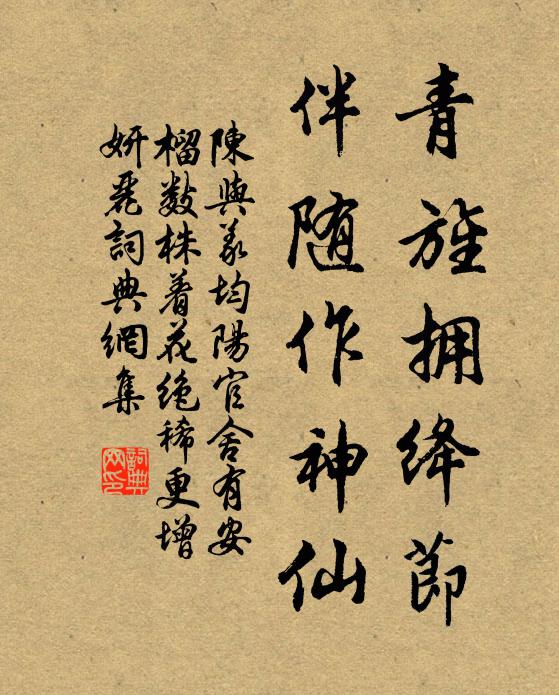 青旌拥绛節
伴随作神仙
陳與義均陽官舍有安
榴數株着花絶稀更增
妍麗詞典網集
詞典网印